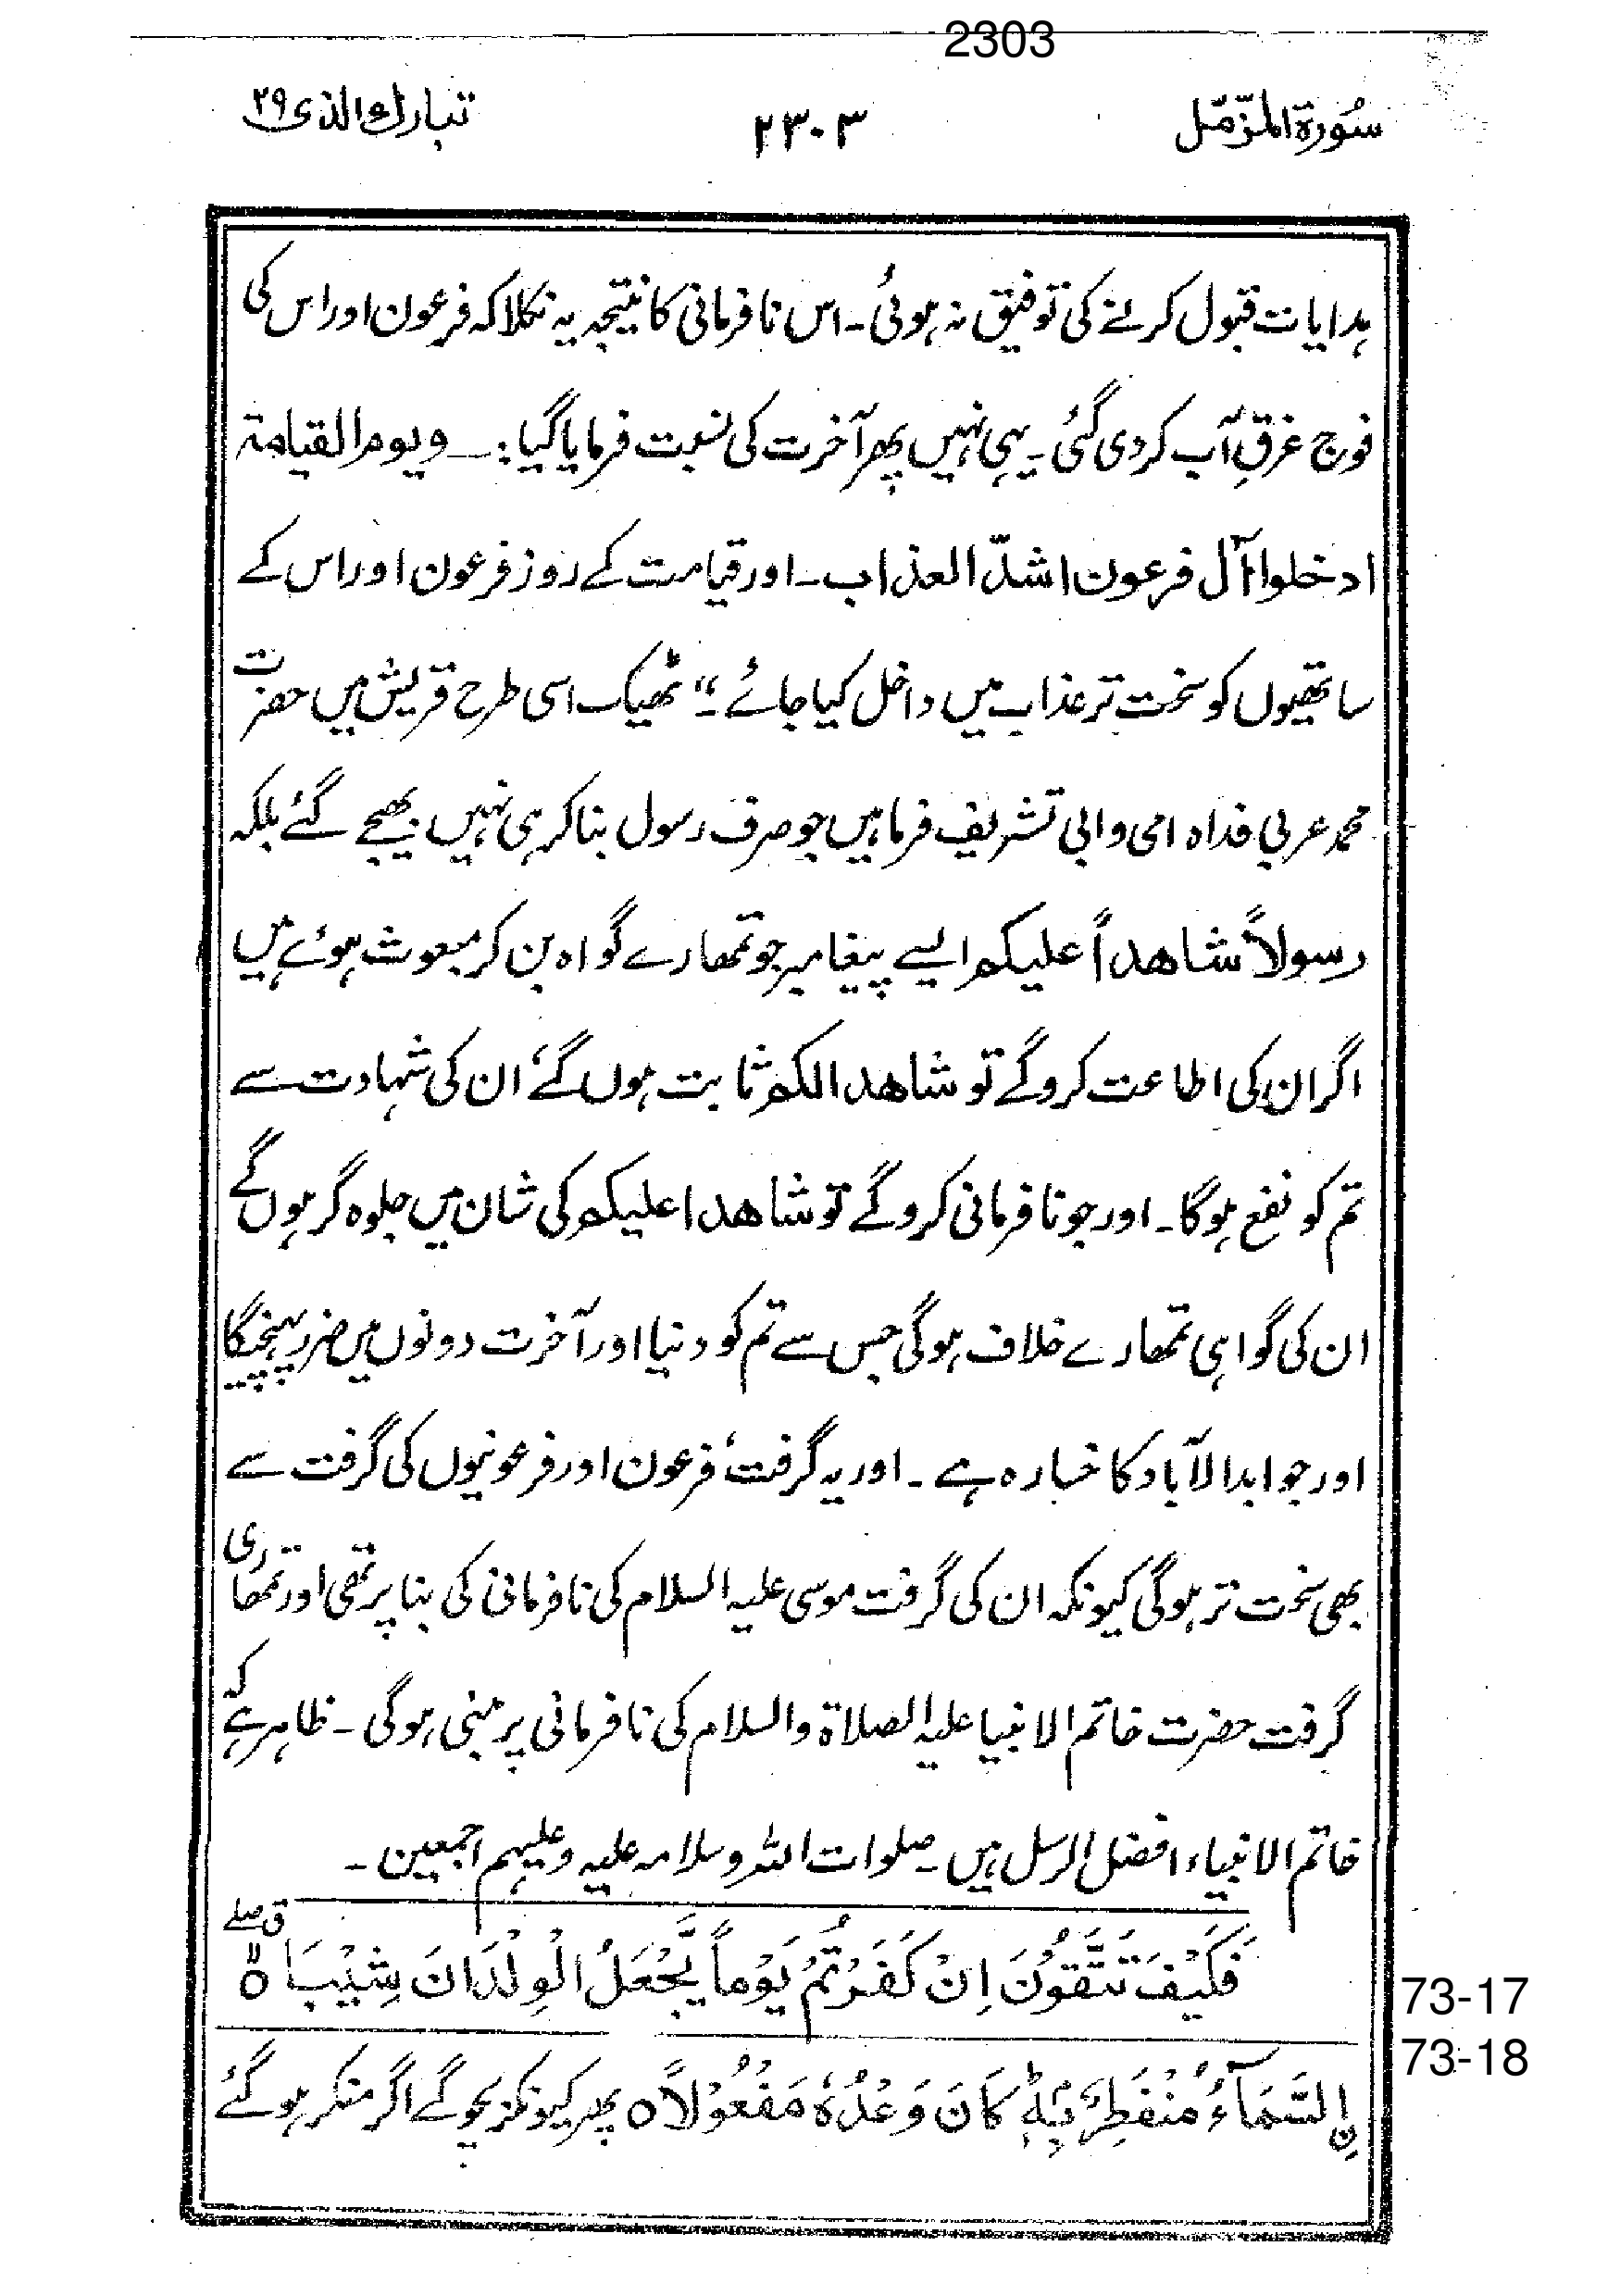 2303
سُورۃ المزّمّل ۲۳۰۳ تبارك الذی ۲۹
ہدایات قبول کرنے کی توفیق نہ ہوئی۔ اس نافرمانی کا نتیجہ یہ نکلا کہ فرعون اور اس کی
فوج غرقِ آب کر دی گئی۔ یہی نہیں پھر آخرت کی نسبت فرمایا گیا :۔ ویوم القیامۃ
ادخلوا آل فرعون اشدّ العذاب۔ اور قیامت کے روز فرعون اور اس کے
ساتھیوں کو سخت تر عذاب میں داخل کیا جائے۔“ ٹھیک اسی طرح قریش میں حضرت
محمد عربی فداہ امی وابی تشریف فرما ہیں جو صرف رسول بنا کر ہی نہیں بھیجے گئے بلکہ
رسولاً شاھداً علیکم ایسے پیغامبر جو تمھارے گواہ بن کر مبعوث ہوئے ہیں
اگر ان کی اطاعت کرو گے تو شاھدا لکم ثابت ہوں گے، ان کی شہادت سے
تم کو نفع ہوگا۔ اور جو نافرمانی کرو گے تو شاھدا علیکم کی شان میں جلوہ گر ہوں گے
ان کی گواہی تمھارے خلاف ہوگی جس سے تم کو دنیا اور آخرت دونوں میں ضرر پہنچیگا
اور جو ابد الآباد کا خسارہ ہے۔ اور یہ گرفت، فرعون اور فرعونیوں کی گرفت سے
بھی سخت تر ہوگی کیونکہ ان کی گرفت موسی علیہ السلام کی نافرمانی کی بنا پر تھی اور تمھاری
گرفت حضرت خاتم الانبیا علیہ الصلاۃ والسلام کی نافرمانی پر مبنی ہوگی۔ ظاہر ہے کہ
خاتم الانبیاء افضل الرسل ہیں۔ صلوات اللہ وسلامہ علیہ وعلیہم اجمعین۔
فَكَیْفَ تَتَّقُوْنَ اِنْ كَفَرْتُمْ یَوْماً یَّجْعَلُ الْوِلْدَانَ شِیْبَاۨ ۝ ق صلے
73-17
73-18
اِلسَّمَآءُ مُنْفَطِرٌۢ بِهٖؕ كَانَ وَعْدُهٗ مَفْعُوْلًا۝ پھر کیونکر بچو گے اگر منکر ہو گئے